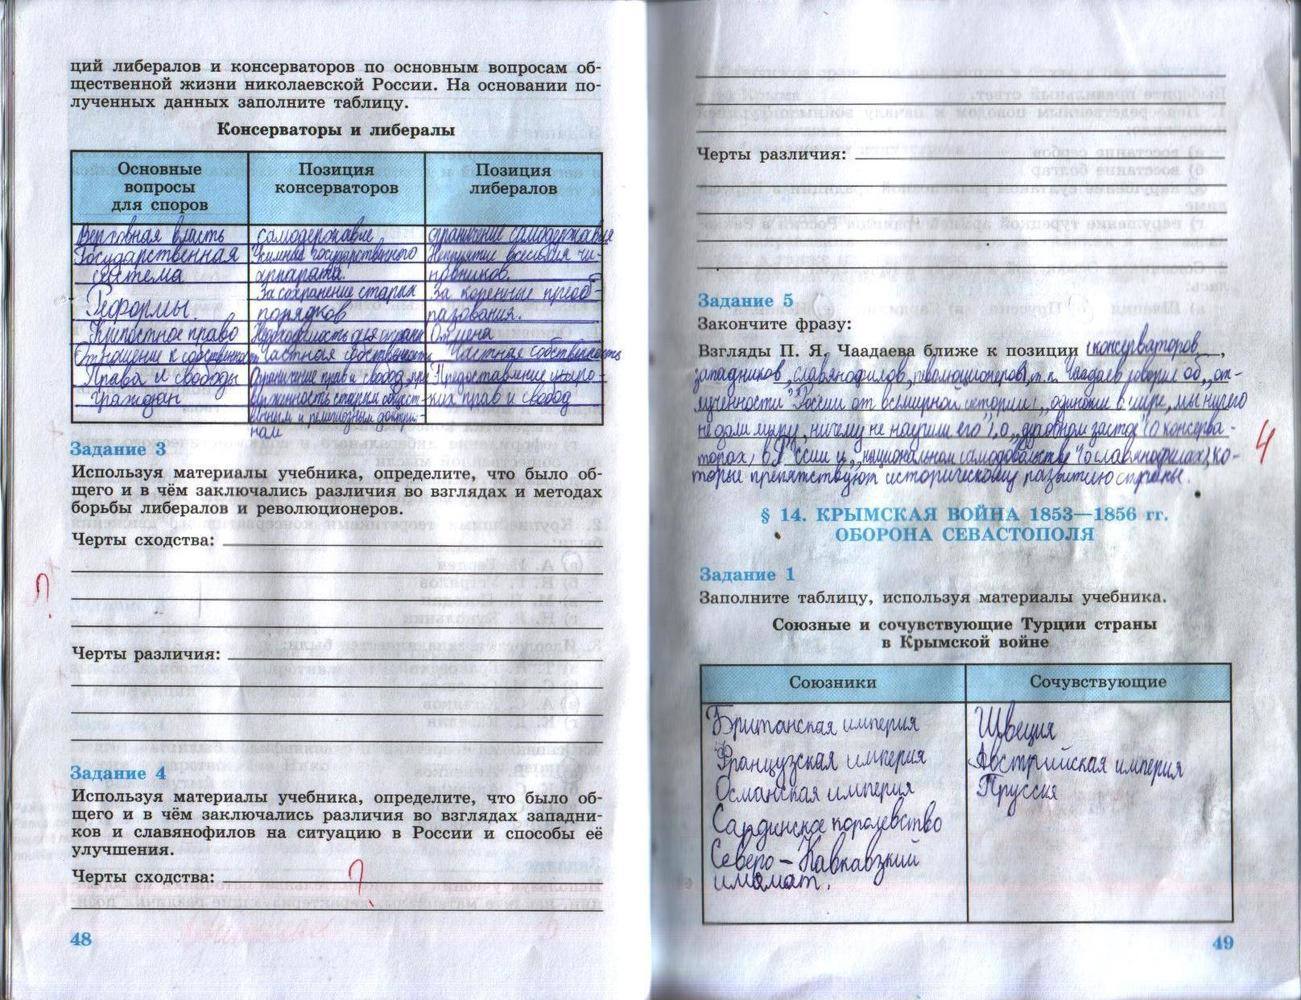 ций либералов и консерваторов по основным вопросам об-
щественной жизни николаевской России. На основании по-
лученных данных заполните таблицу.
Консерваторы и либералы
Основные вопросы для споров
Позиция консерваторов
Позиция либералов
Верховная власть
самодержавие
ограничение самодержавия
Государственная система
Усиление государственного аппарата.
Неприятие всесилия чи-
новников.
Реформы.
За сохранение старых порядков
За коренные преоб-
разования.
Крепостное право
Отмена
Отношение к собственности
Частная собственность
Частная собственность
Права и свободы граждан
Ограничение прав и свобод
Предоставление широ-
ких прав и свобод
Задание 3
Используя материалы учебника, определите, что было об-
щего и в чём заключались различия во взглядах и методах
борьбы либералов и революционеров.
Черты сходства:
Черты различия:
Задание 4
Используя материалы учебника, определите, что было об-
щего и в чём заключались различия во взглядах западни-
ков и славянофилов на ситуацию в России и способы её
улучшения.
Черты сходства:
?
48
Черты различия:
Задание 5
Закончите фразу:
Взгляды П. Я. Чаадаева ближе к позиции (консерваторов,
западников, славянофилов, революционеров), т.к. Чаадаев говорил об „от-
лученности" России от всемирной истории („одинокие в мире, мы ничего
не дали миру, ничему не научили его"), о „духовном застое" (о консерва-
торах) в России и „национальном самодовольстве" (о славянофилах), ко-
торые препятствуют историческому развитию страны.
4
§ 14. КРЫМСКАЯ ВОЙНА 1853—1856 гг.
ОБОРОНА СЕВАСТОПОЛЯ
Задание 1
Заполните таблицу, используя материалы учебника.
Союзные и сочувствующие Турции страны
в Крымской войне
Союзники
Сочувствующие
Британская империя
Швеция
Французская империя
Австрийская империя
Османская империя
Пруссия
Сардинское королевство
Северо-Кавказский
имамат.
49